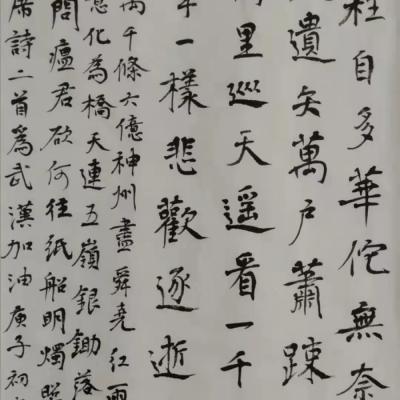 枉自多華佗無奈
遺矢萬戶蕭疎
里巡天遥看一千
一樣悲歡逐逝
萬千條六億神州盡舜堯紅雨
意化為橋天連五嶺銀鋤落
問瘟君欲何往紙船明燭照
席詩二首為武漢加油庚子初